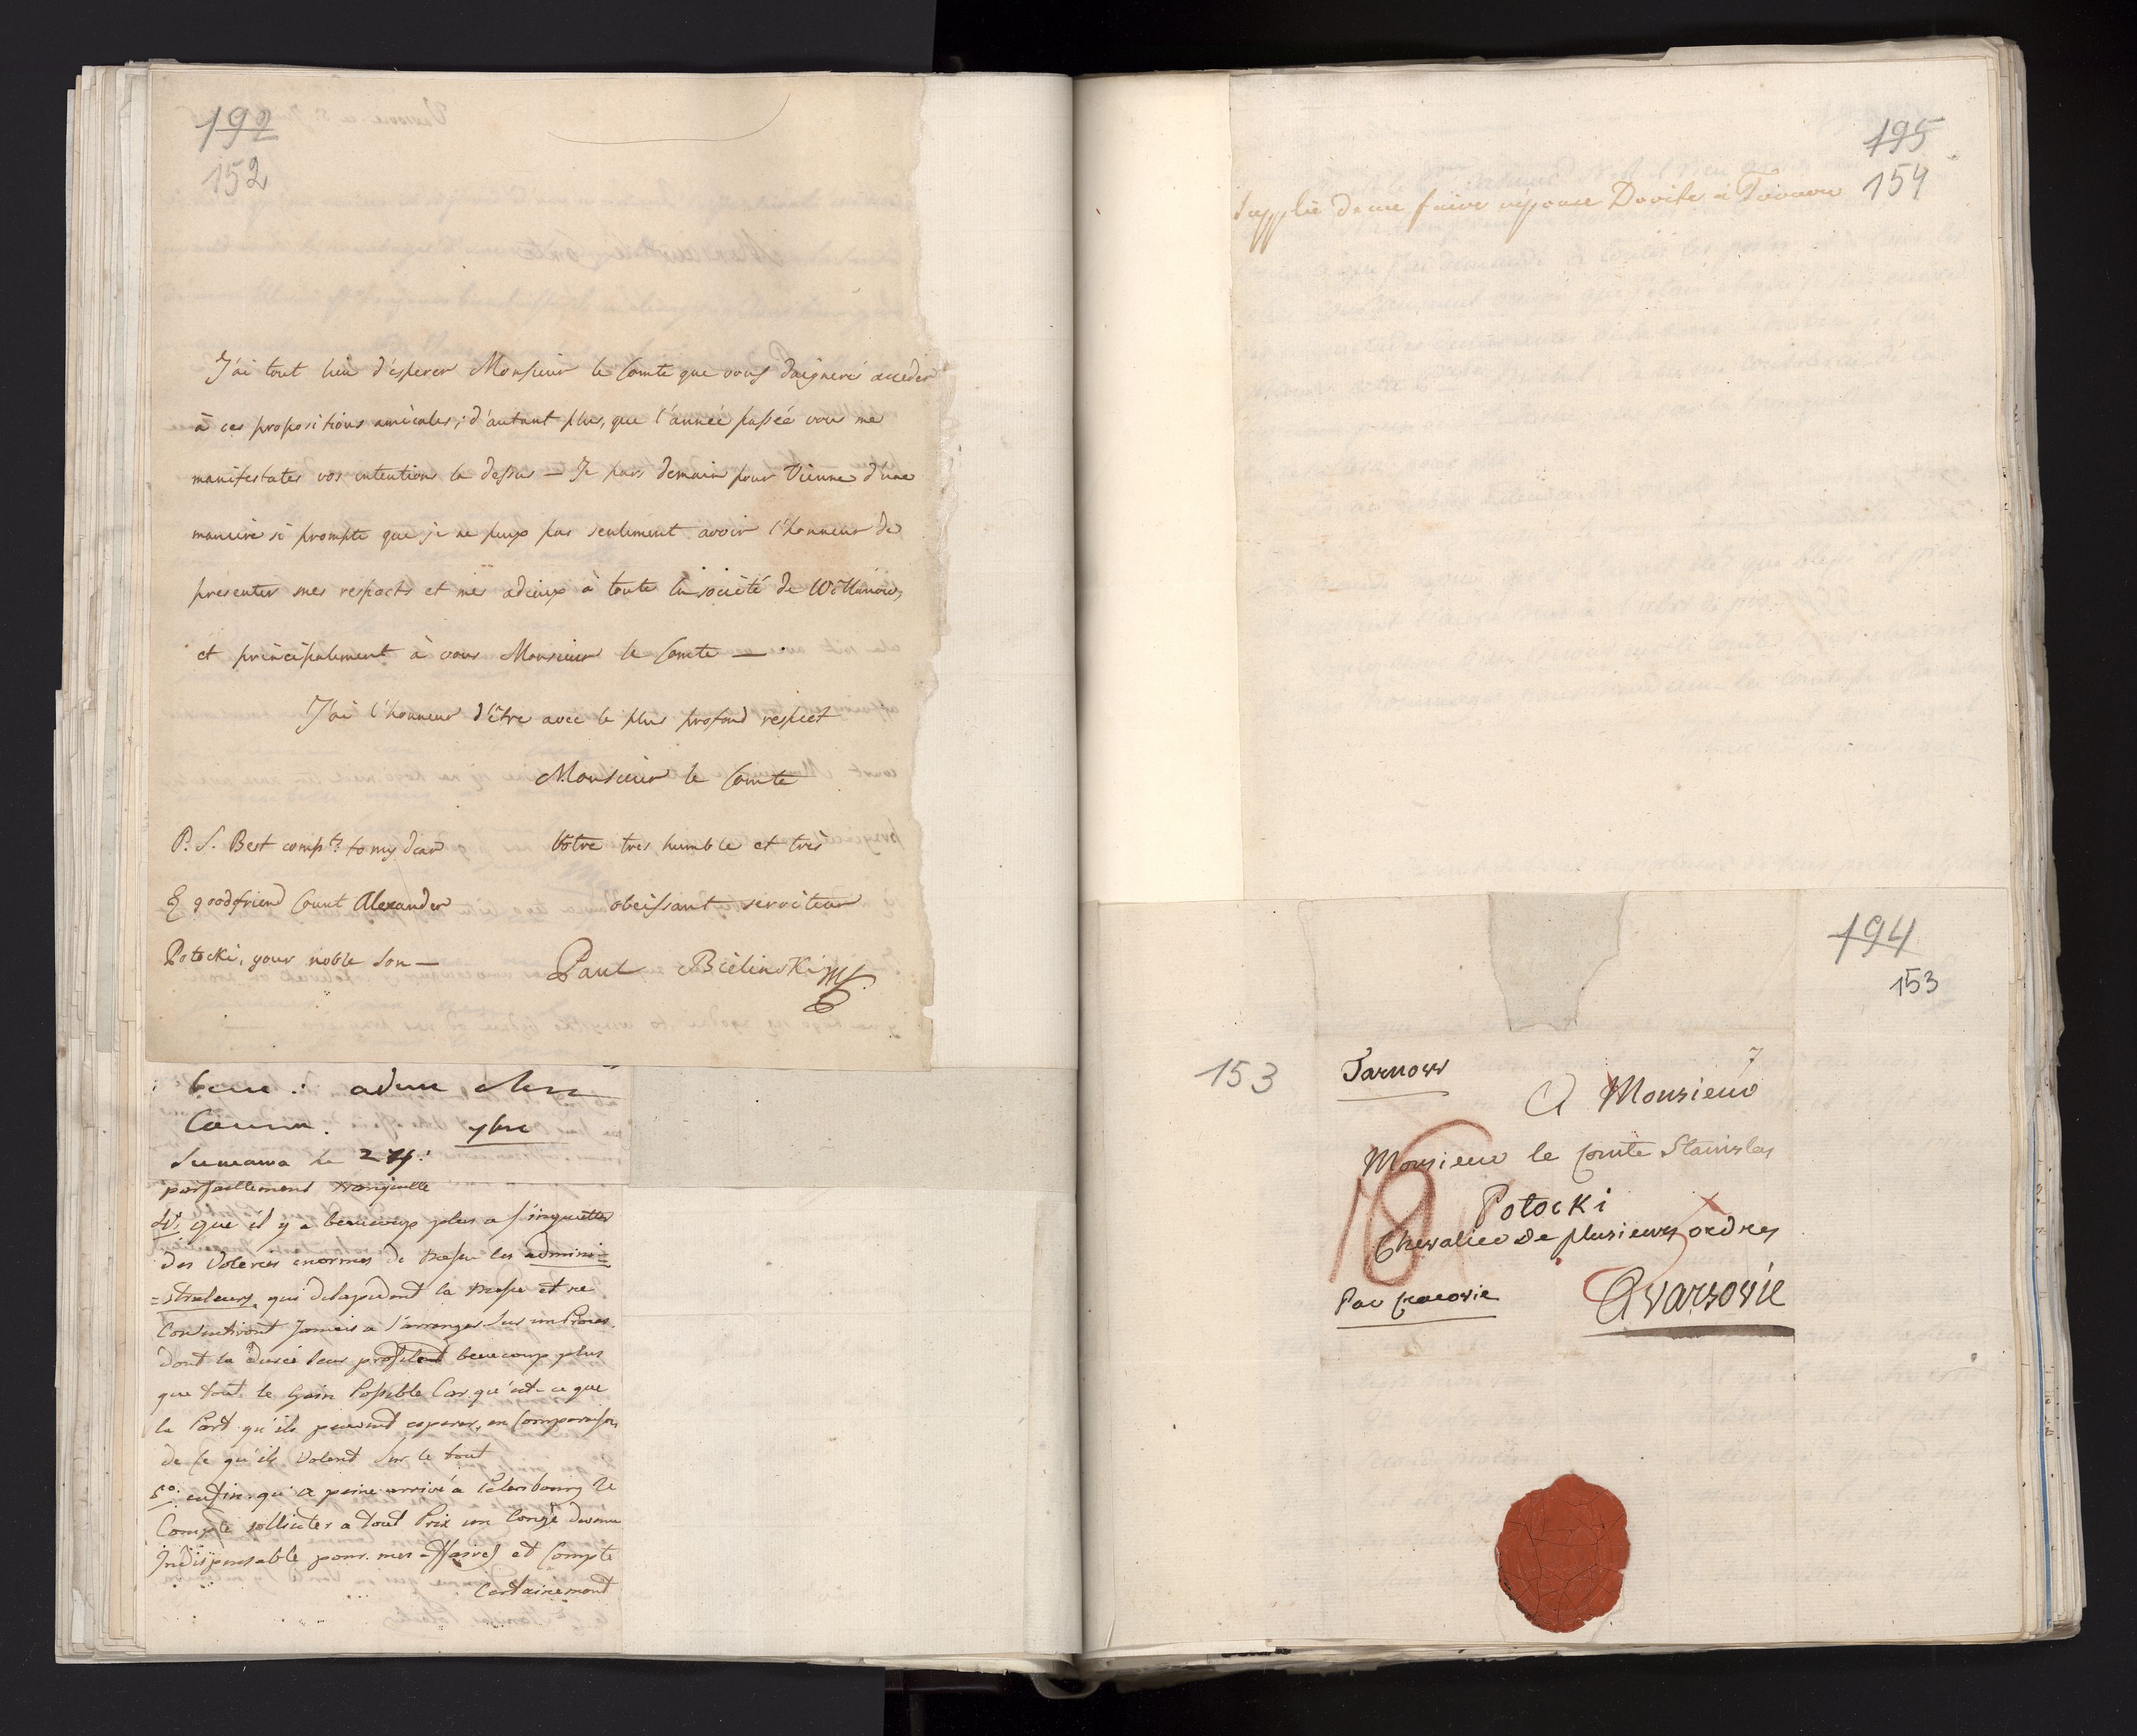 192
152
J'ai tout lieu d'esperer Monsieur le Comte que vous daignerés acceder
à ces propositions amicales; d'autant plus, que l'année passée vous me
manifestates vos intentions la dessus — Je pars demain pour Vienne d'une
maniere si prompte que je ne peux pas seulement avoir l'honneur de
presenter mes respects et mes adieux à toute la société de Willanow,
et principalement à vous Monsieur le Comte —.
J'ai l'honneur d'être avec le plus profond respect
Monsieur le Comte
Votre très humble et très
obeissant serviteur
Paul Bielinski
P. S. Best compts to my dear
& good friend Count Alexander
Potocki, your noble son —
le 24:
parfaitement tranquille
4º. que il y a beaucoup plus a s'inquietter
des Voleries enormes de Messrs les admini=
=strateurs, qui delapident la Masse et ne
Consentiront Jamais a s'arranger sur un Proces
dont la durée leur profitent beaucoup plus
que tout le Gain Possible Car qu'est-ce que
la Part qu'ils peuvent esperer, en Comparaison
de Ce qu'ils Volent sur le tout
5º: enfin qu'a peine arrivé à Petersbourg Je
Compte solliciter a tout Prix un Congé devenu
Indispensable pour mes affaires et Compte
Certainement
195
154
supplie de me faire réponse Douite à
194
153
153
Tarnow
7
A Monsieur
Monsieur le Comte Stanislas
Potocki
Chevalier de plusieurs ordres
18
Par Cracovie
A Varsovie